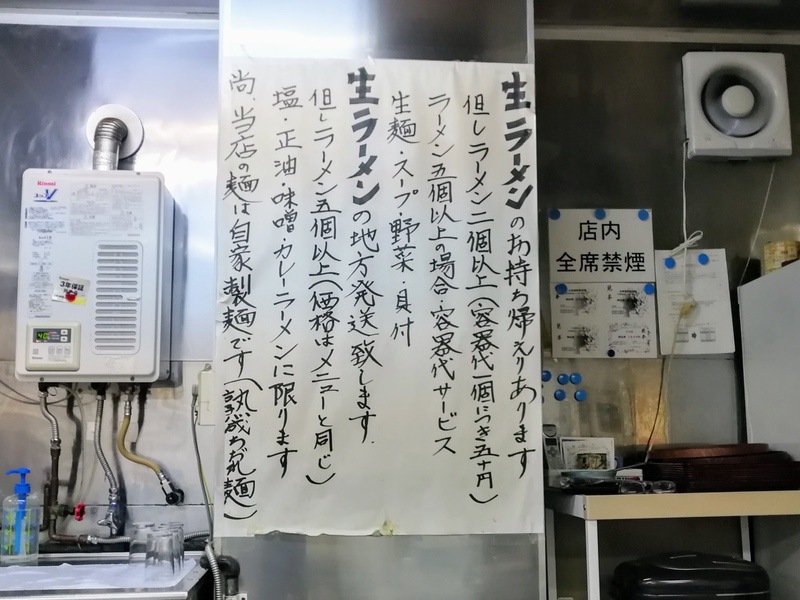 生ラーメンのお持ち帰えりあります
但しラーメン二個以上(容器代一個につき五十円)
ラーメン五個以上の場合・容器代サービス
生麺・スープ・野菜・具付
生ラーメンの地方発送致します.
但しラーメン五個以上(価格はメニューと同じ)
塩・正油・味噌・カレーラーメンに限ります
尚、当店の麺は自家製麺です(熟成ちぢれ麺)
店内
全席禁煙
Rinnai
3年保証
40